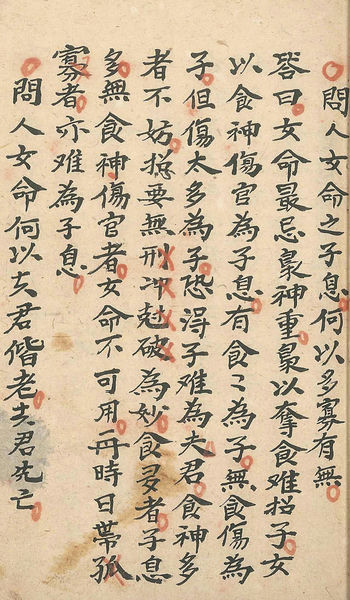 問人女命之子息何以多寡有無
答曰女命最忌梟神重梟以奪食难招子女
以食神傷官為子息有食〻為子無食傷為
子但傷太多為子恐淂子难為夫君食神多
者不妨揔要無刑冲尅破為妙食多者子息
多無食神傷官者女命不可用丹時日帶孤
寡者亦难為子息
問人女命何以夫君偕老夫君先亡